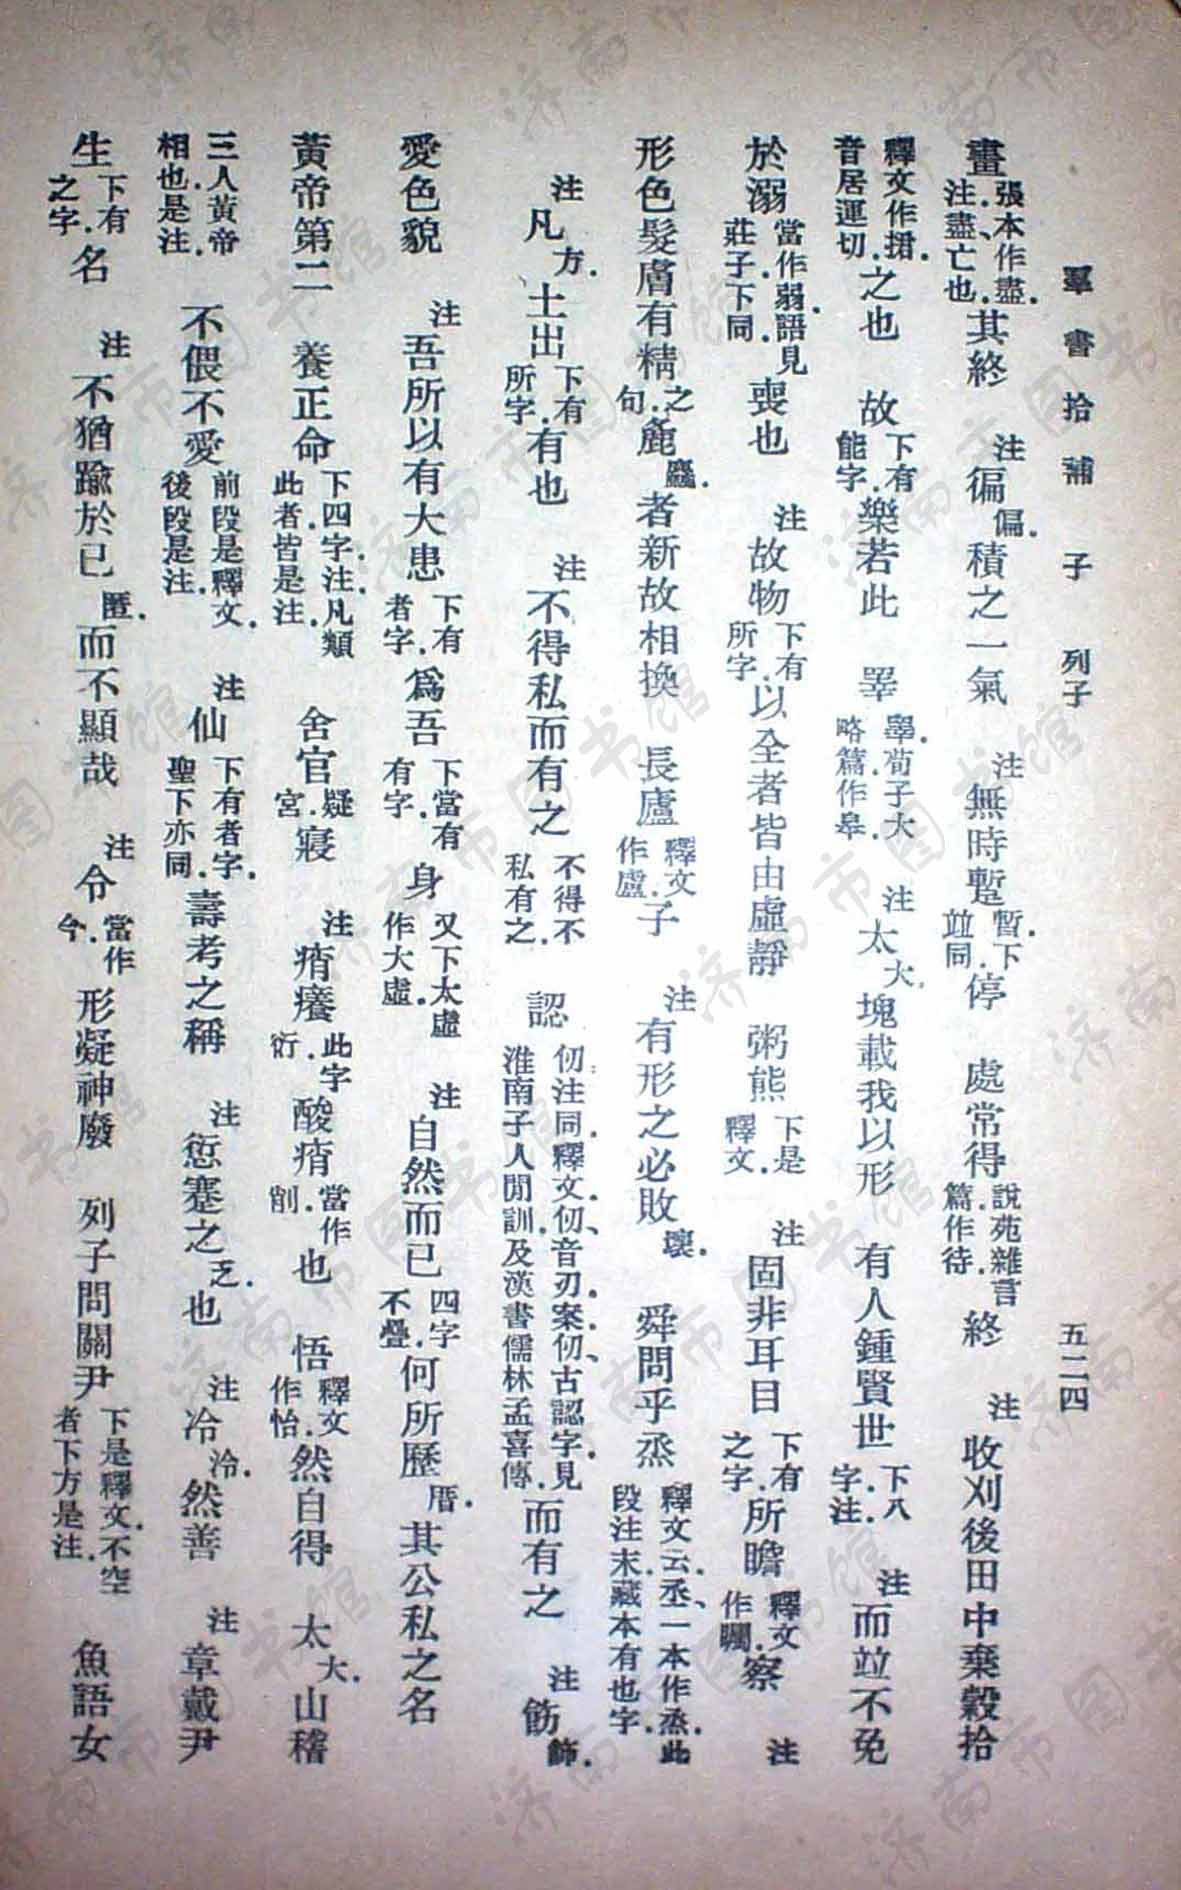 羣書拾補 子 列子 五二四
畫張本作盡.注、盡亡也.其終 注徧偏.積之一氣 注無時蹔暫.下竝同.停 處常得說苑雜言篇作待.終 注收刈後田中棄穀拾
釋文作捃.音居運切.之也 故下有能字.樂若此 睪睾.荀子大略篇作皋. 注太大.塊載我以形 有人鍾賢世下八字.注. 注而竝不免
於溺當作弱.語見莊子.下同.喪也 注故物下有所字.以全者皆由虛靜 粥熊下是釋文. 注固非耳目下有之字.所瞻釋文作矚.察 注
形色髮膚有精之句.麄麤.者新故相換 長廬釋文作盧.子 注有形之必敗壞. 舜問乎烝釋文云.丞、一本作烝.此段注末.藏本有也字.
注凡方.土出下有所字.有也 注不得私而有之不得不私有之. 認仞.注同.釋文.仞、音刃.案.仞、古認字.見淮南子人閒訓.及漢書儒林孟喜傳.而有之 注飭飾.
愛色貌 注吾所以有大患下有者字.爲吾下當有有字.身又下太虛作大虛. 注自然而已四字不疊.何所歷厤.其公私之名
黃帝第二 養正命下四字.注.凡類此者.皆是注. 舍官疑宮.寢 注㾕癢此字衍.酸㾕當作削.也 悟釋文作怡.然自得 太大.山稽
三人黃帝相也.是注. 不偎不愛前段是釋文.後段是注. 注仙下有者字.聖下亦同.壽考之稱 注愆蹇之乏.也 注冷泠.然善 注章戴尹
生下有之字.名 注不猶踰於已匿.而不顯哉 注令當作今.形凝神廢 列子問關尹下是釋文.不空者下方是注. 魚語女